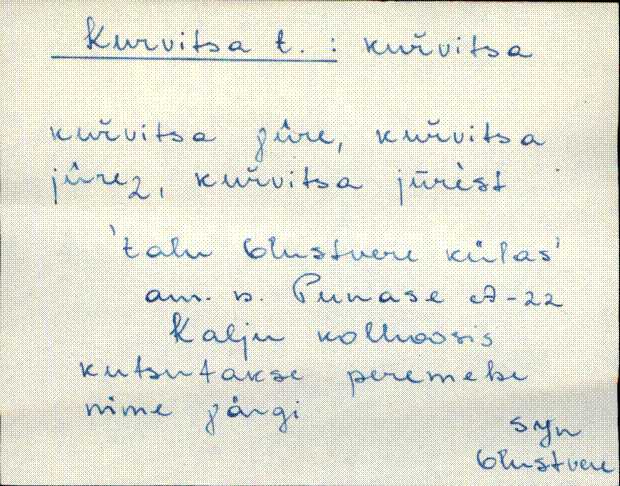 Kurvitsa t. : kur̆vitsa
kur̆vitsa jûre, kur̆vitsa
jûrez, kur̆vitsa jūrèst
'talu Olustvere külas'
am. n. Punase A-22
Kalju kolhoosis
kutsutakse peremehe
nime järgi
SJn
Olustvere